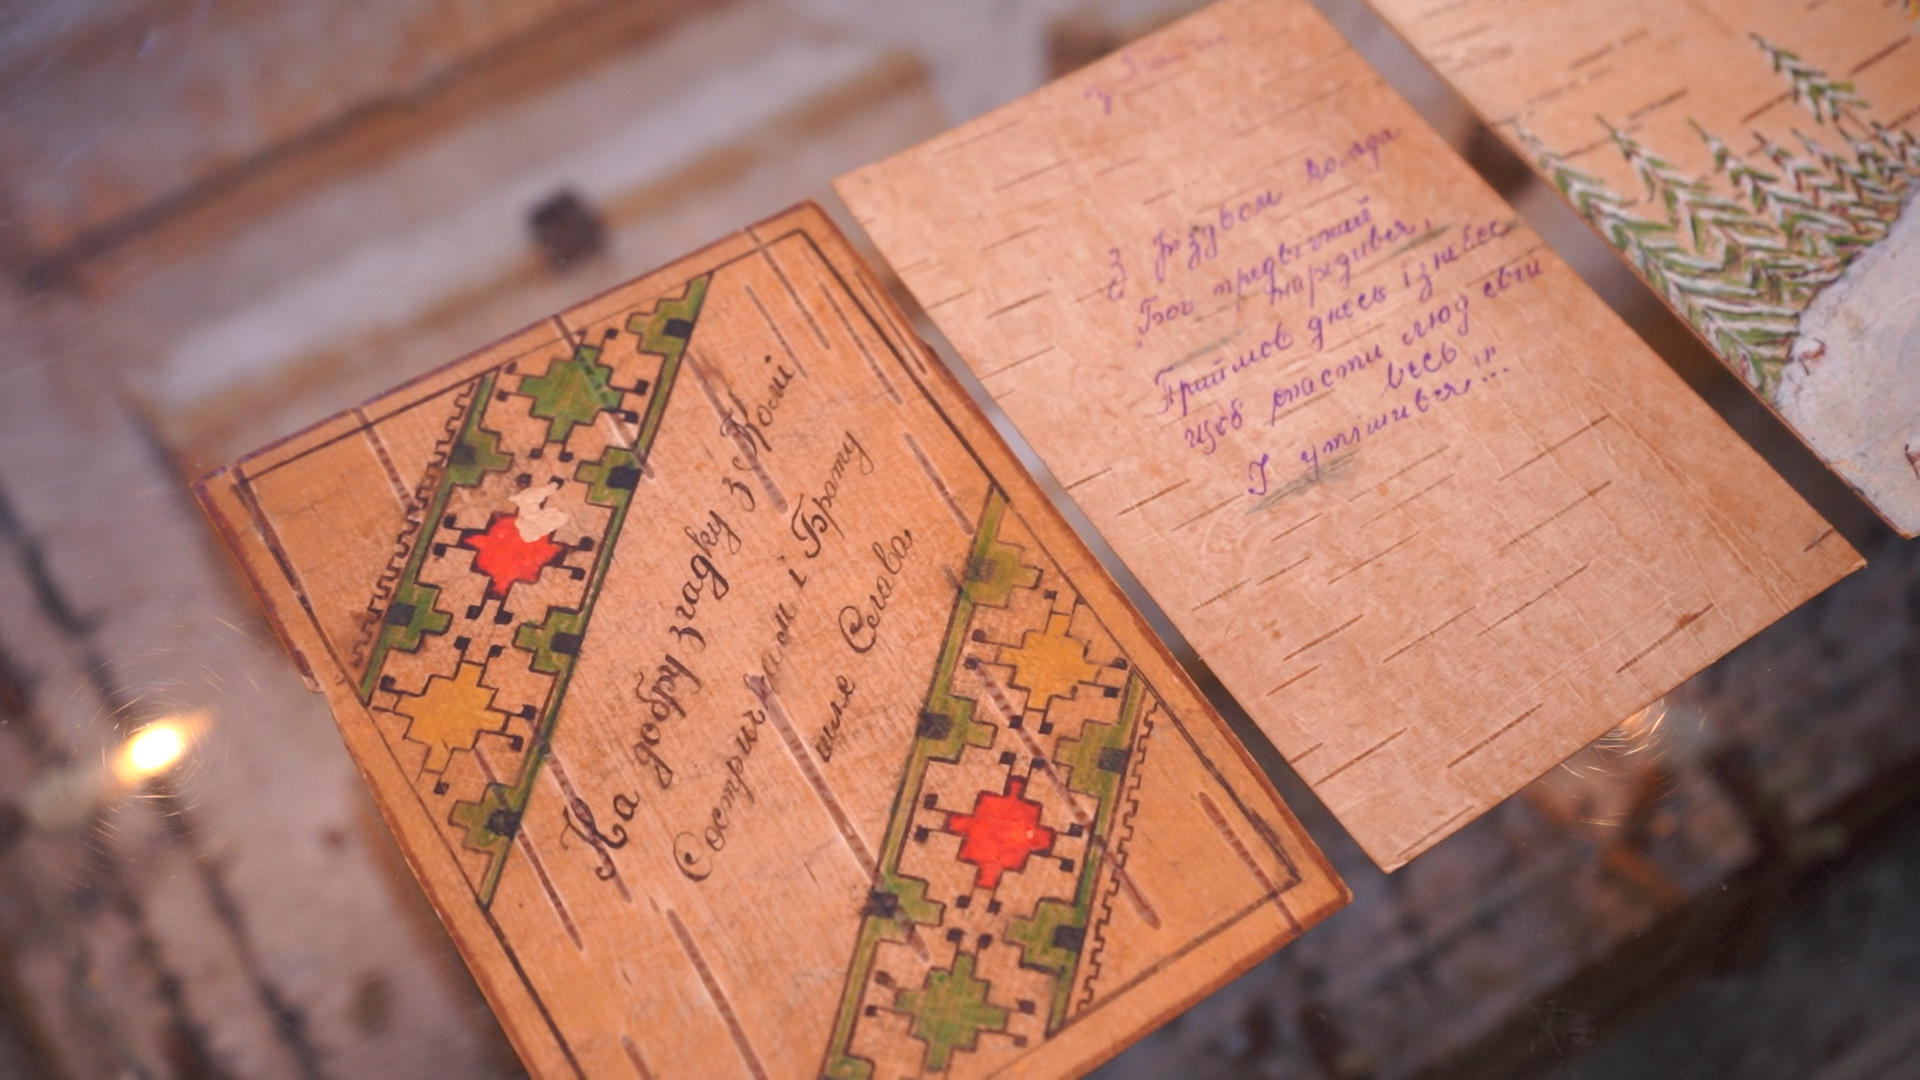 На добру згадку з Комі
Сестричкам і Брату
шле Селава
З Різдвом
Бог предвічний
народився,
Прийшов днесь із небес
Щоб спасти люд свій
весь
І утішився!!!